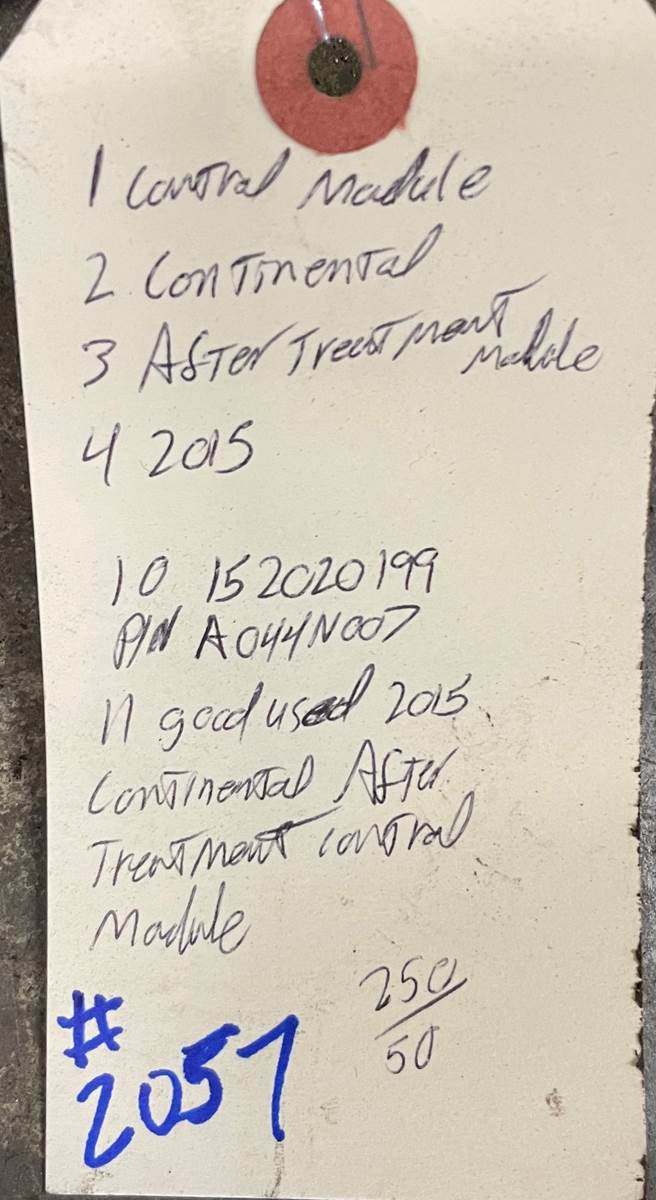 1 Control Module
2 Continental
3 After Treatment Module
4 2015
10 152020199
P/N A044N007
11 good used 2015
Continental After
Treatment Control
Module
250/50
# 2057